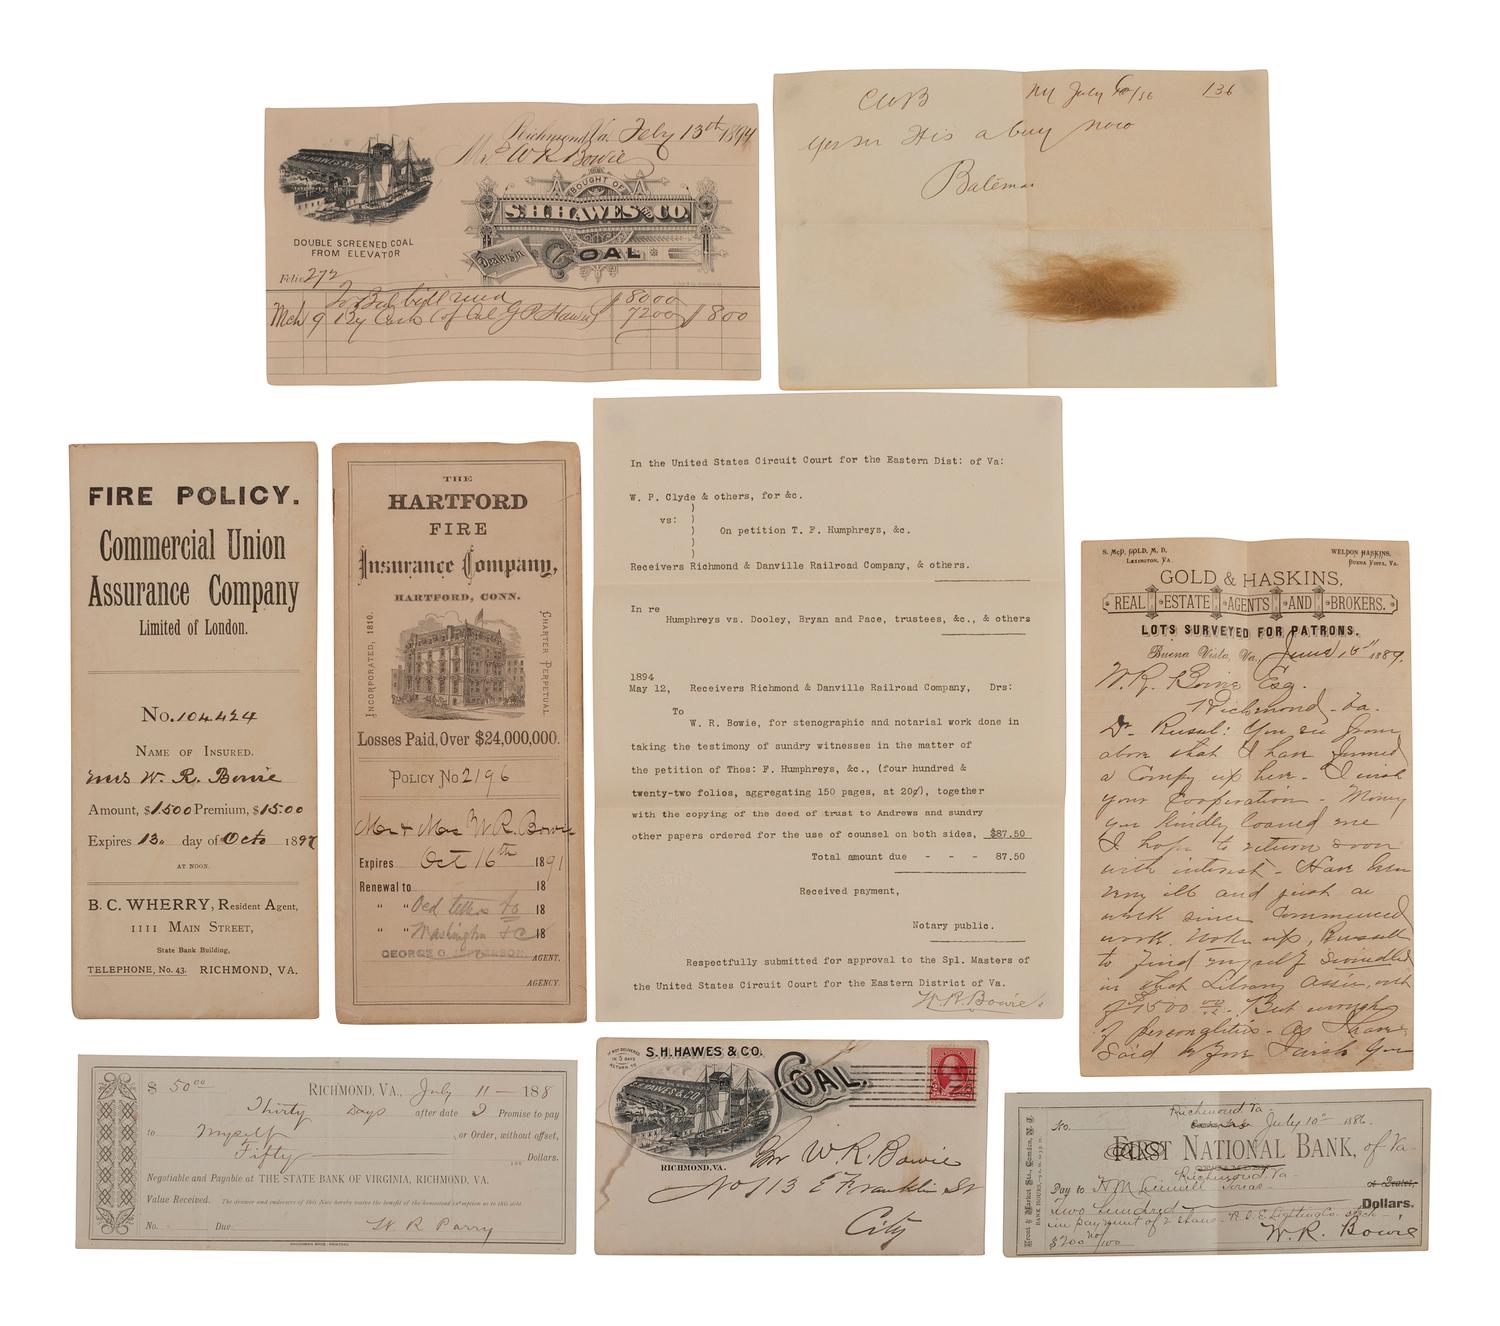 Richmond, Va. Feby 13th 1894
Mr. W R Bowie
BOUGHT OF
S. H. HAWES AND CO.
Dealers in COAL
S.H. HAWES & CO.
DOUBLE SCREENED COAL
FROM ELEVATOR
Folio 272
To Bal bill rend $80 00
Mch 9 By Cash 72 00 $8 00
CWB NY July 136
a buy now
Bateman
FIRE POLICY.
Commercial Union
Assurance Company
Limited of London.
No. 104424
NAME OF INSURED.
Mrs W. R. Bowie
Amount, $1500 Premium, $15.00
Expires 13. day of Octo 1897
AT NOON.
B. C. WHERRY, Resident Agent,
1111 MAIN STREET,
State Bank Building,
TELEPHONE, No. 43. RICHMOND, VA.
THE
HARTFORD
FIRE
Insurance Company,
HARTFORD, CONN.
INCORPORATED, 1810.
CHARTER PERPETUAL
Losses Paid, Over $24,000,000.
POLICY No 2196
Mr & Mrs W. R. Bowie
Expires Oct 16th 1891
Renewal to 18
" " 18
" " Washington 18
GEORGE AGENT.
AGENCY.
In the United States Circuit Court for the Eastern Dist: of Va:
W. P. Clyde & others, for &c.
)
vs: )
) On petition T. F. Humphreys, &c.
)
)
Receivers Richmond & Danville Railroad Company, & others.
In re
Humphreys vs. Dooley, Bryan and Pace, trustees, &c., & others
1894
May 12, Receivers Richmond & Danville Railroad Company, Drs:
To
W. R. Bowie, for stenographic and notarial work done in
taking the testimony of sundry witnesses in the matter of
the petition of Thos: F. Humphreys, &c., (four hundred &
twenty-two folios, aggregating 150 pages, at 20¢), together
with the copying of the deed of trust to Andrews and sundry
other papers ordered for the use of counsel on both sides, $87.50
Total amount due - - - 87.50
Received payment,
Notary public.
Respectfully submitted for approval to the Spl. Masters of
the United States Circuit Court for the Eastern District of Va.
W. R. Bowie.
S. McD. GOLD, M. D. WELDON HASKINS,
LEXINGTON, VA. BUENA VISTA, VA.
GOLD & HASKINS,
REAL ESTATE AGENTS AND BROKERS.
LOTS SURVEYED FOR PATRONS.
Buena Vista, Va., June 15" 1889.
W. R. Bowie Esq.
Richmond - Va.
Dr Russel: You see from
above that I have formed
a Compy up here - I wish
your Cooperation - Money
you kindly loaned me
I hope to return soon
with interest - Have been
very ill and just at
work since Commenced
work. Woke up, Russell
to find myself swindled
in that Library Assn, out
of $1500 00. But enough
of personalities - As I have
said before I wish you
$ 50 00 RICHMOND, VA., July 11 - 188
Thirty Days after date I Promise to pay
to Myself or Order, without offset,
Fifty Dollars.
100
Negotiable and Payable at THE STATE BANK OF VIRGINIA, RICHMOND, VA.
Value Received. The drawers and endorsers of this Note hereby waive the benefit of the homestead exemption as to this debt.
No. Due W. R Parry
IF NOT DELIVERED
IN 5 DAYS
RETURN TO
S.H. HAWES & CO.
COAL.
S.H. HAWES & CO.
RICHMOND, VA.
Mr W. R. Bowie
No 113 E Franklin St
City
Front & Market Sts., Camden, N. J.
Richmond Va.
No. July 10" 1886.
FIRST NATIONAL BANK, of Va-
Richmond Va-
Pay to
Two hundred Dollars.
in payment of 2 shares R. & E Lighting Co. stock -
$200 no/100 W. R. Bowie